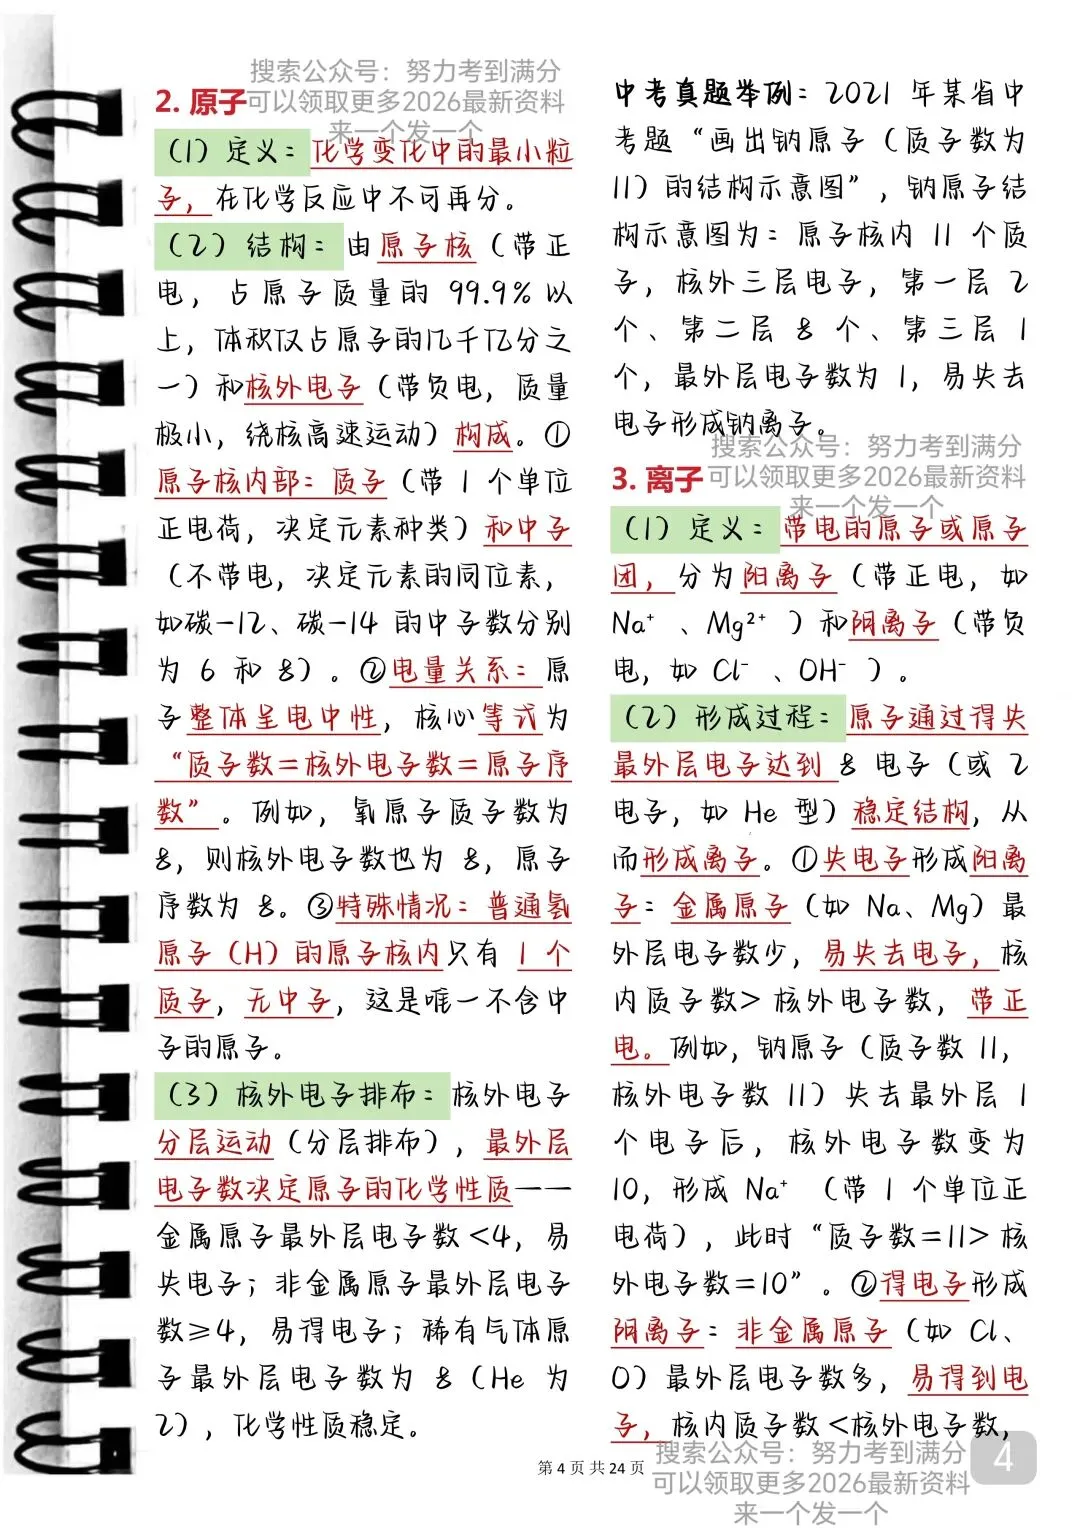 搜索公众号：努力考到满分
可以领取更多2026最新资料
来一个发一个
2. 原子
（1）定义：化学变化中的最小粒
子，在化学反应中不可再分。
（2）结构：由原子核（带正
电，占原子质量的 99.9% 以
上，体积仅占原子的几千亿分之
一）和核外电子（带负电，质量
极小，绕核高速运动）构成。①
原子核内部：质子（带 1 个单位
正电荷，决定元素种类）和中子
（不带电，决定元素的同位素，
如碳-12、碳-14 的中子数分别
为 6 和 8）。②电量关系：原
子整体呈电中性，核心等式为
“质子数＝核外电子数＝原子序
数”。例如，氧原子质子数为
8，则核外电子数也为 8，原子
序数为 8。③特殊情况：普通氢
原子（H）的原子核内只有 1 个
质子，无中子，这是唯一不含中
子的原子。
（3）核外电子排布：核外电子
分层运动（分层排布），最外层
电子数决定原子的化学性质——
金属原子最外层电子数＜4，易
失电子；非金属原子最外层电子
数≥4，易得电子；稀有气体原
子最外层电子数为 8（He 为
2），化学性质稳定。
中考真题举例：2021 年某省中
考题“画出钠原子（质子数为
11）的结构示意图”，钠原子结
构示意图为：原子核内 11 个质
子，核外三层电子，第一层 2
个、第二层 8 个、第三层 1
个，最外层电子数为 1，易失去
电子形成钠离子。
搜索公众号：努力考到满分
可以领取更多2026最新资料
来一个发一个
3. 离子
（1）定义：带电的原子或原子
团，分为阳离子（带正电，如
Na⁺ 、Mg²⁺ ）和阴离子（带负
电，如 Cl⁻ 、OH⁻ ）。
（2）形成过程：原子通过得失
最外层电子达到 8 电子（或 2
电子，如 He 型）稳定结构，从
而形成离子。①失电子形成阳离
子：金属原子（如 Na、Mg）最
外层电子数少，易失去电子，核
内质子数＞核外电子数，带正
电。例如，钠原子（质子数 11，
核外电子数 11）失去最外层 1
个电子后，核外电子数变为
10，形成 Na⁺ （带 1 个单位正
电荷），此时“质子数＝11＞核
外电子数＝10”。②得电子形成
阴离子：非金属原子（如 Cl、
O）最外层电子数多，易得到电
子，核内质子数＜核外电子数，
搜索公众号：努力考到满分
可以领取更多2026最新资料
来一个发一个
第 4 页 共 24 页
4